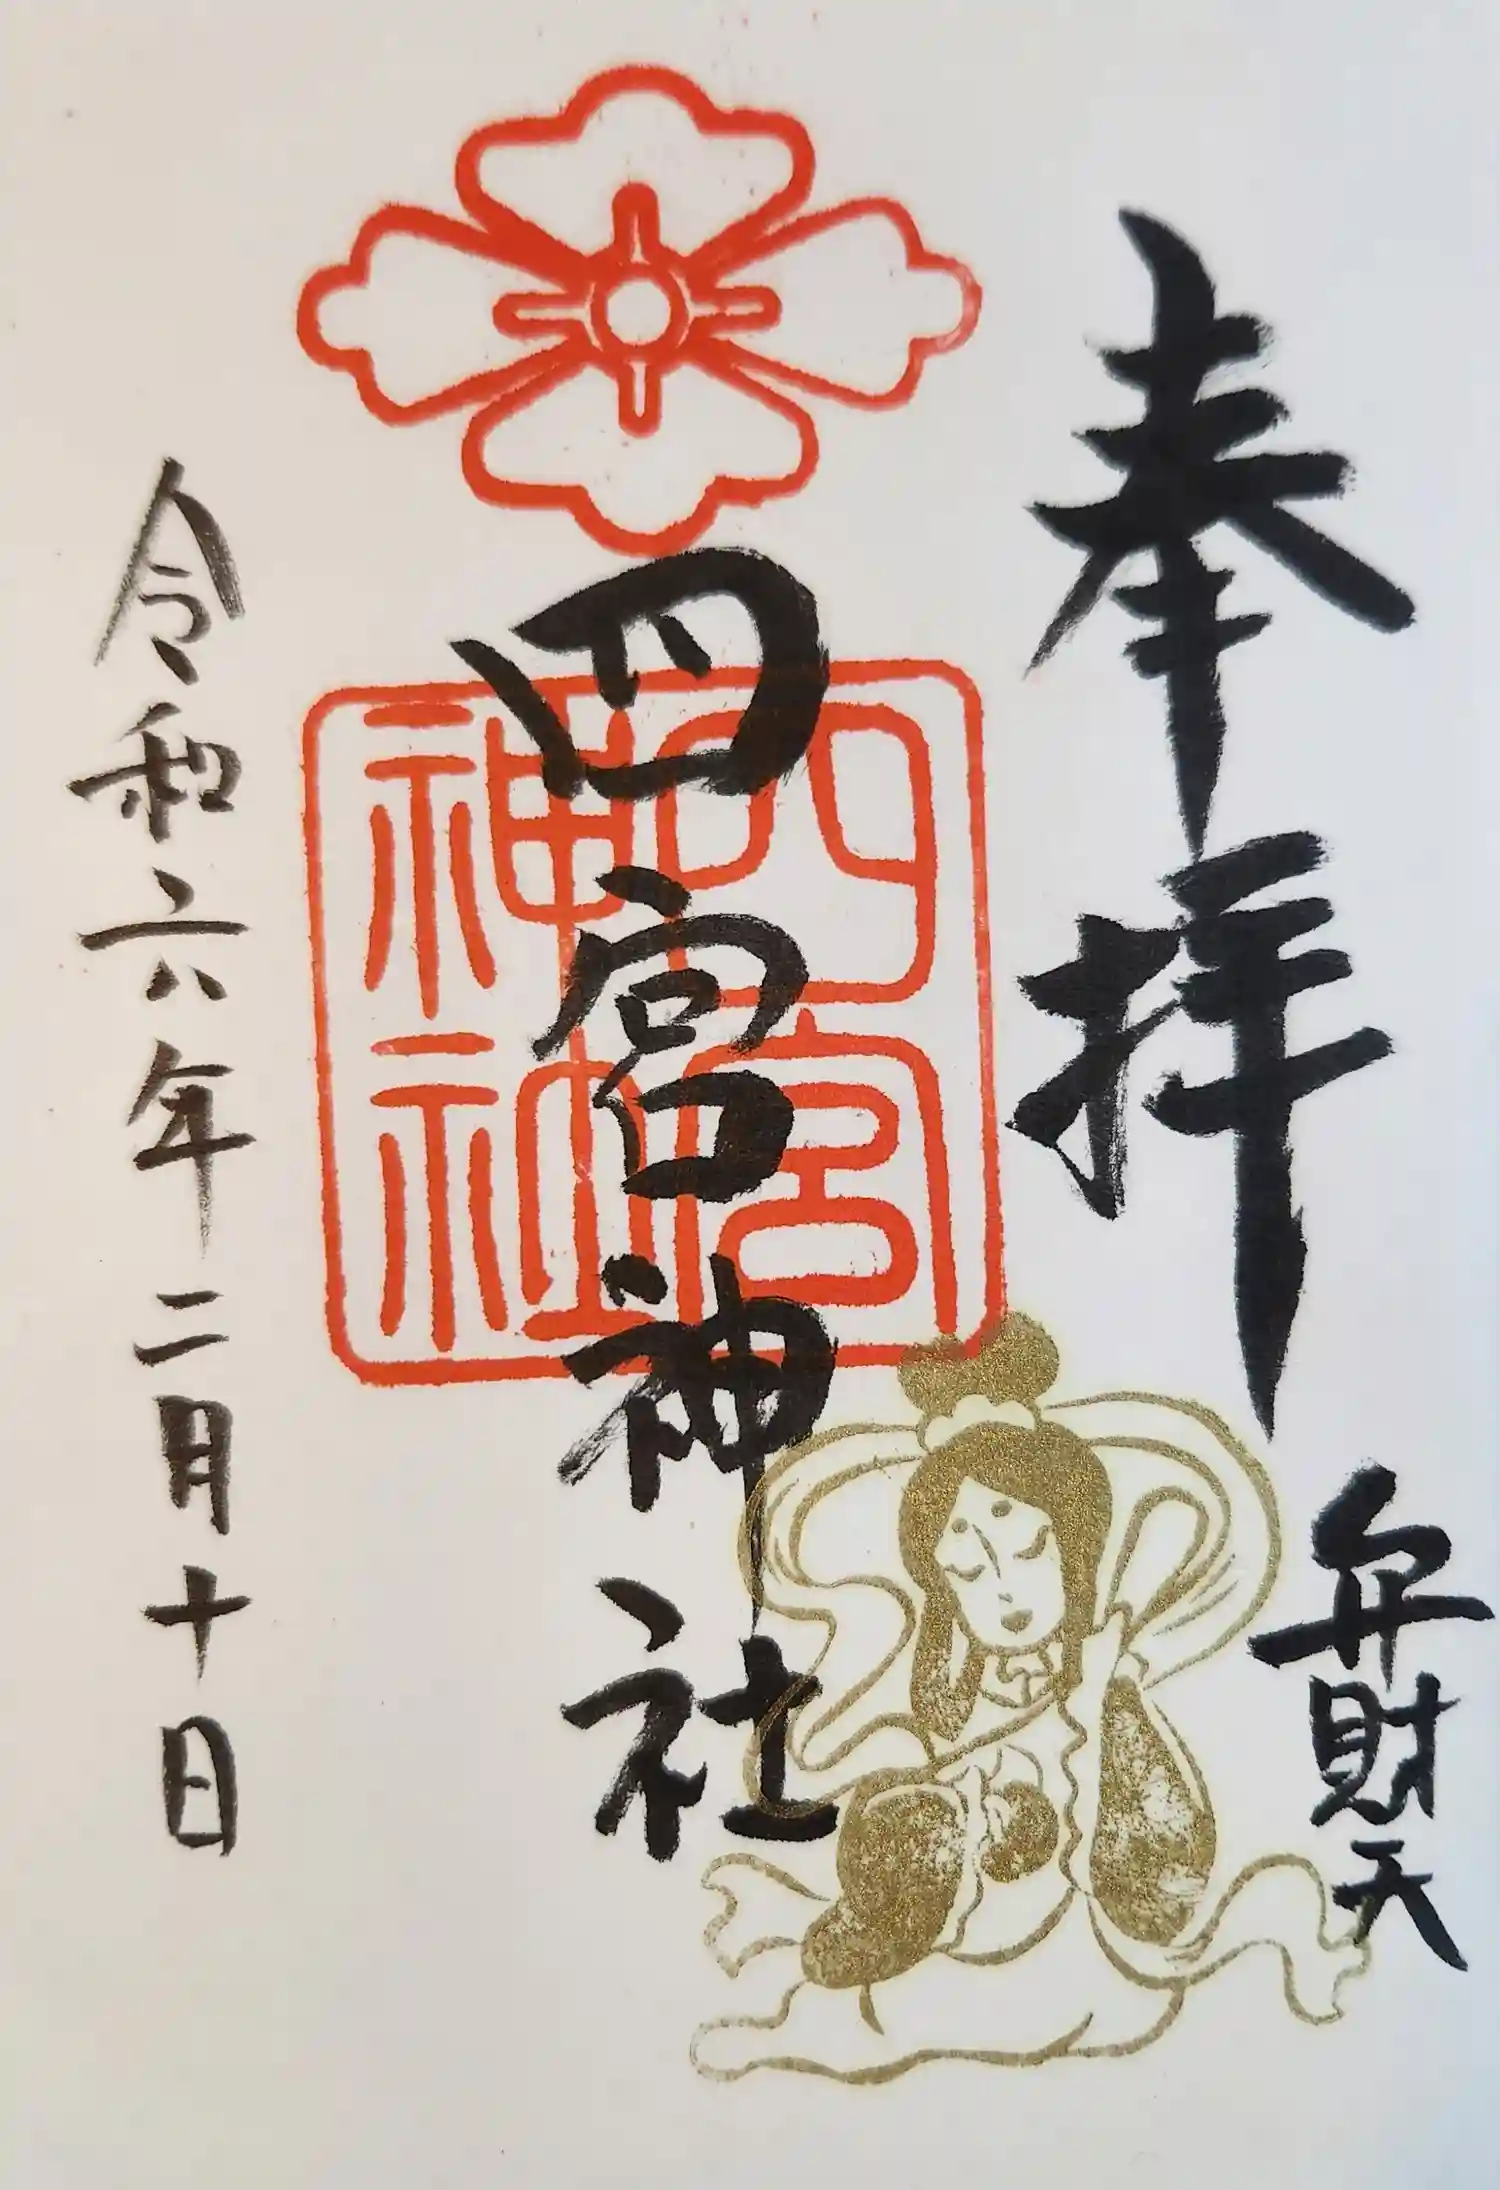 奉拝
弁財天
四宮神社
四宮
神社
令和六年二月十日